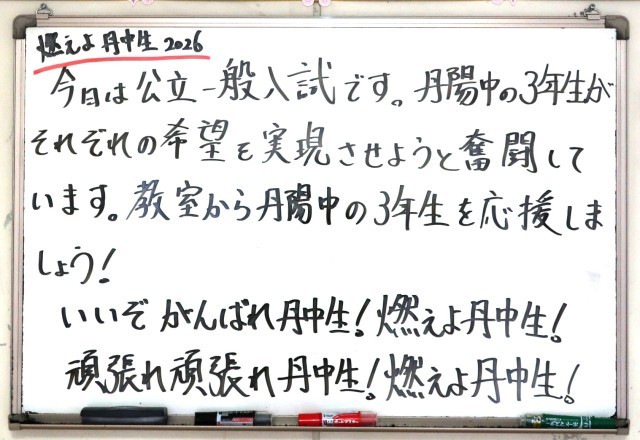 燃えよ丹中生2026
今日は公立一般入試です。丹陽中の3年生が
それぞれの希望を実現させようと奮闘して
います。教室から丹陽中の3年生を応援しま
しょう!
いいぞ がんばれ丹中生!燃えよ丹中生!
頑張れ頑張れ丹中生!燃えよ丹中生!